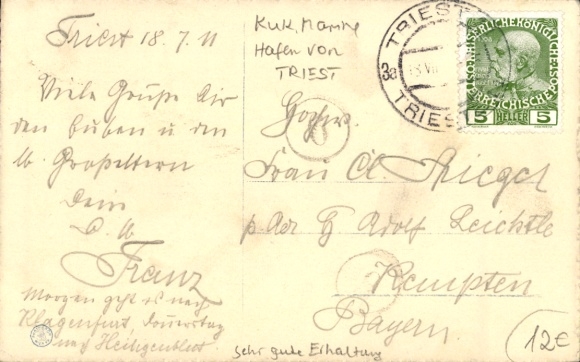 Triest 18.7.11
Viele Grüße Dir
den Buben u den
lb. Großeltern
Dein
Franz
Morgen geht es nach
Klagenfurt, Donnerstag
nach Heiligenblut.
KuK. Marine
Hafen von
TRIEST
TRIEST
TRIEST
KAISERLICHEKÖNIGLICHE
ÖSTERREICHISCHE
5 HELLER 5
6
Frau Cl. Riegel
p Adr H Adolf Leichtle
Kempten
Bayern.
sehr gute Erhaltung
12€